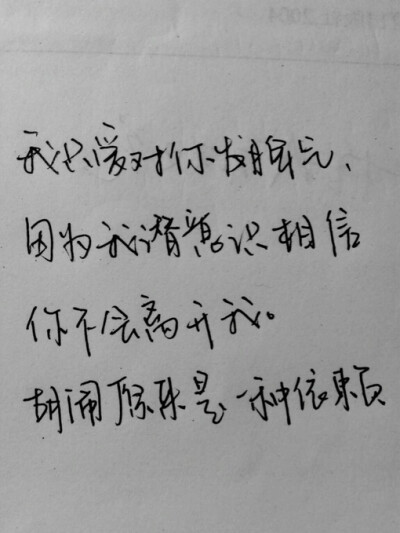 我只爱对你发脾气、
因为我潜意识相信
你不会离开我。
胡闹原来是一种依赖